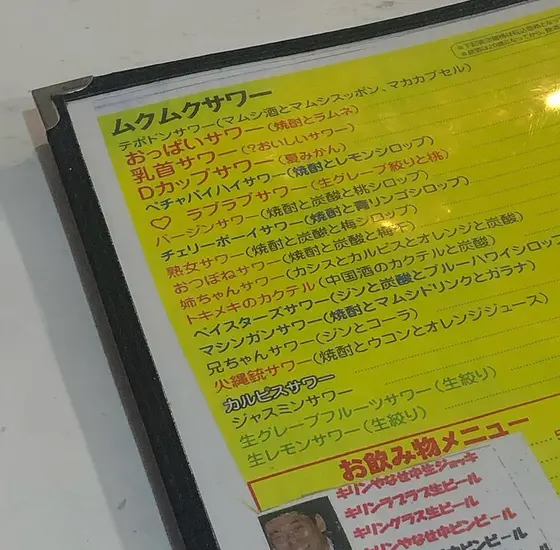 ムクムクサワー
テポドンサワー(マムシ酒とマムシスッポン、マカカプセル)
おっぱいサワー(焼酎とラムネ)
乳首サワー(?おいしいサワー)
Dカップサワー(夏みかん)
ペチャパイハイサワー(焼酎とレモンシロップ)
♡ ラブラブサワー(生グレープ絞りと桃)
バージンサワー(焼酎と炭酸と桃シロップ)
チェリーボーイサワー(焼酎と青リンゴシロップ)
熟女サワー(焼酎と炭酸と梅シロップ)
おつぼねサワー(焼酎と炭酸と梅干し)
姉ちゃんサワー(カシスとカルピスとオレンジと炭酸)
トキメキのカクテル(中国酒のカクテルと炭酸)
ベイスターズサワー(ジンと炭酸とブルーハワイシロップ
マシンガンサワー(焼酎とマムシドリンクとガラナ)
兄ちゃんサワー(ジンとコーラ)
火縄銃サワー(焼酎とウコンとオレンジジュース)
カルピスサワー
ジャスミンサワー
生グレープフルーツサワー(生絞り)
生レモンサワー(生絞り)
お飲み物メニュー
キリンやなせ中生ジョッキ
キリンラブラブ生ビール
キリングラス生ビール
キリンやなせ中ビンビール